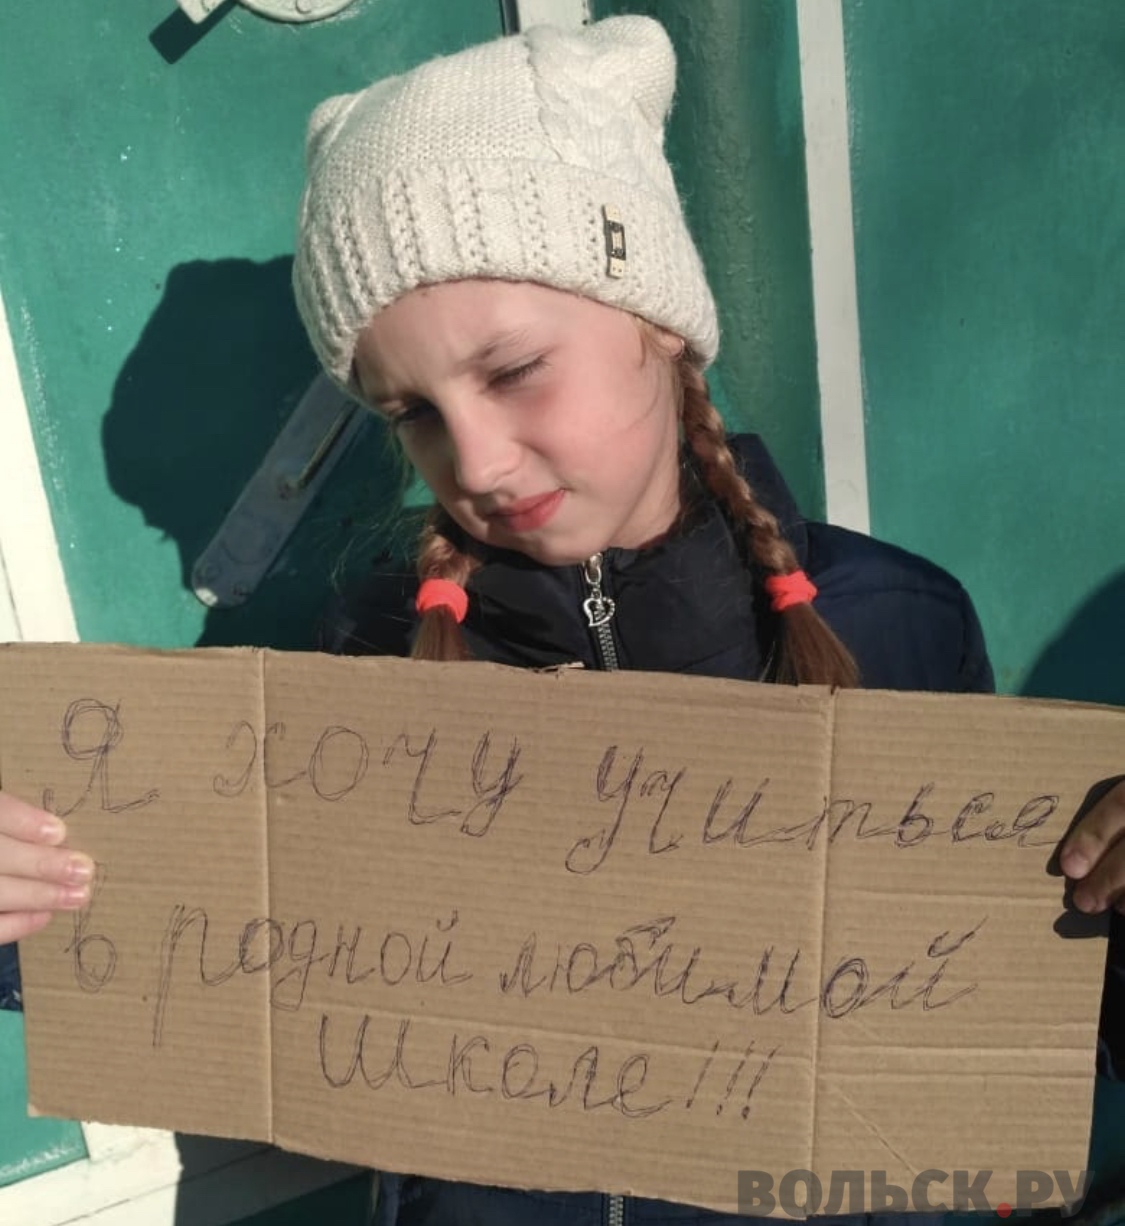 Я хочу учиться
в родной любимой
школе!!!
ВОЛЬСК.РУ